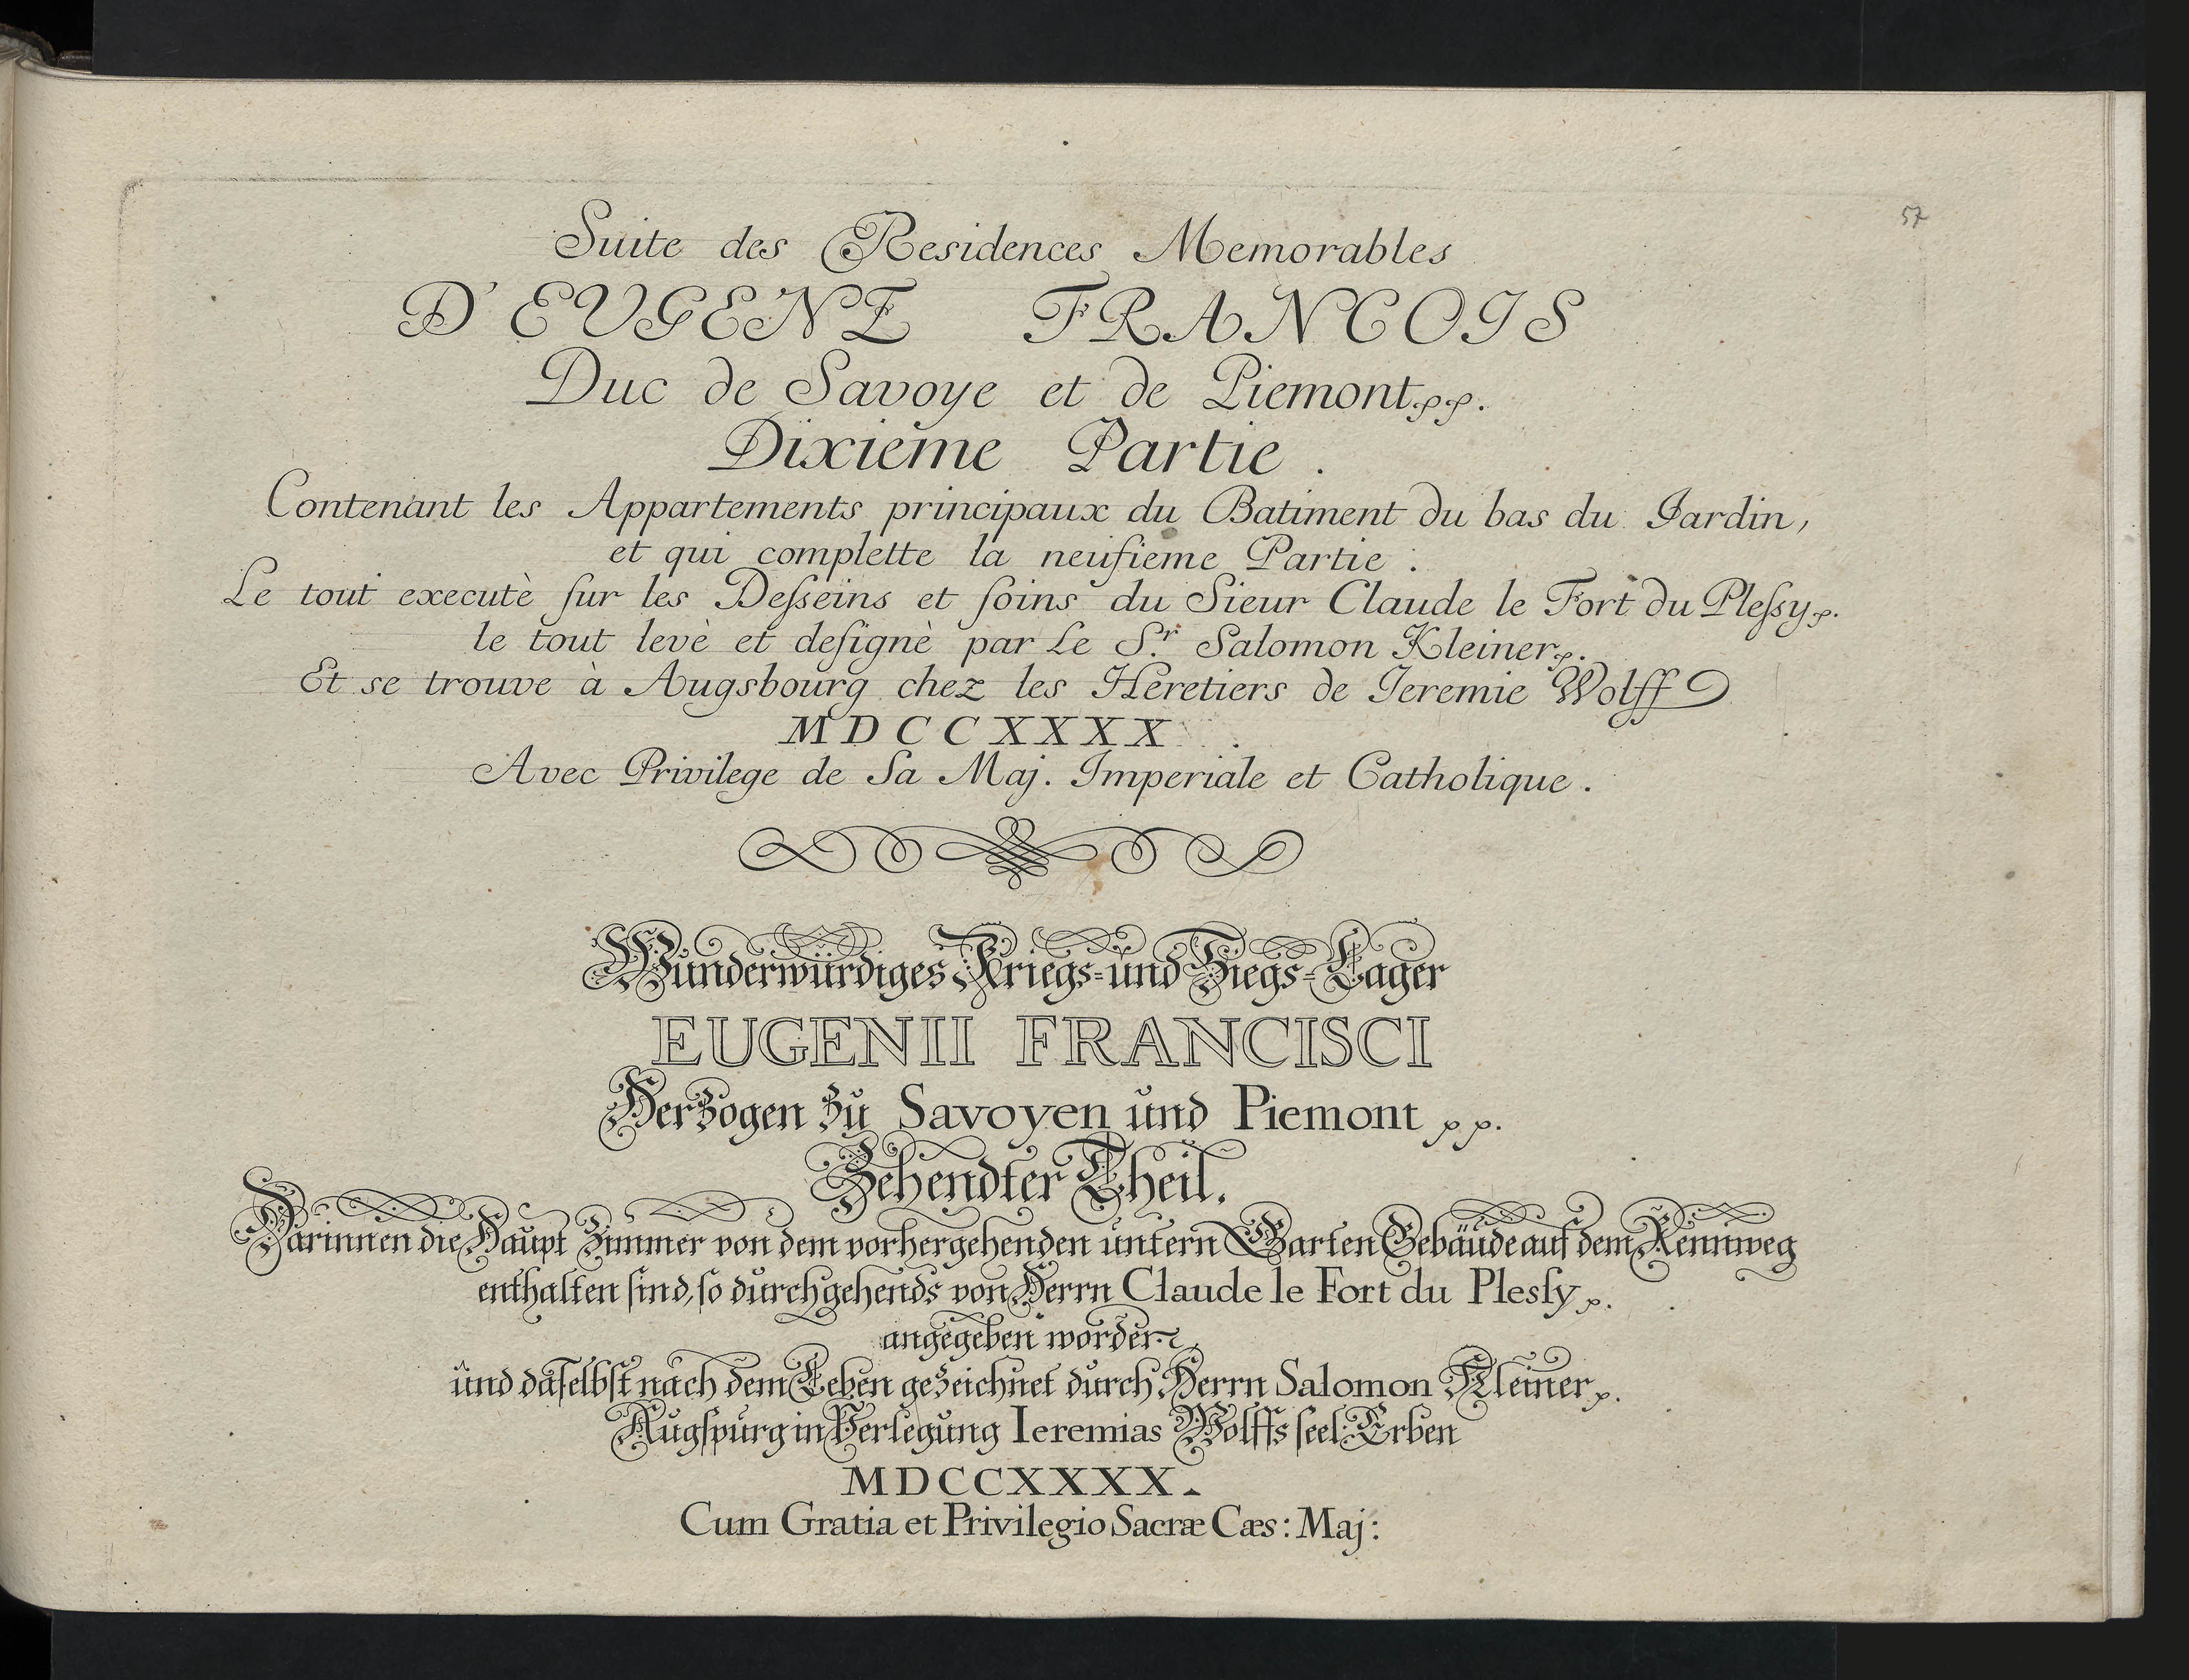 57
Suite des Residences Memorables
D'EUGENE FRANCOIS
Duc de Savoye et de Piemont.pp.
Dixieme Partie.
Contenant les Appartements principaux du Batiment du bas du Iardin,
et qui complette la neufieme Partie:
Le tout executè ſur les Deſseins et ſoins du Sieur Claude le Fort du Pleſsy p.
le tout levè et deſignè par Le S.r Salomon Kleiner p.
Et se trouve à Augsbourg chez les Heretiers de Ieremie Wolff
MDCCXXXX.
Avec Privilege de Sa Maj. Imperiale et Catholique.
Wunderwürdiges Kriegs= und Siegs=Lager
EUGENII FRANCISCI
Herzogen zu Savoyen und Piemont pp.
Zehendter Theil.
Darinnen die Haupt Zimmer von dem vorhergehenden untern Garten Gebäude auf dem Rennweg
enthalten ſind, ſo durchgehends von Herrn Claude le Fort du Plesſy p.
angegeben worden
und daſelbſt nach dem Leben gezeichnet durch Herrn Salomon Kleiner p.
Augſpurg in Verlegung Ieremias Wolffs ſeel: Erben
MDCCXXXX.
Cum Gratia et Privilegio Sacræ Cæs: Maj: